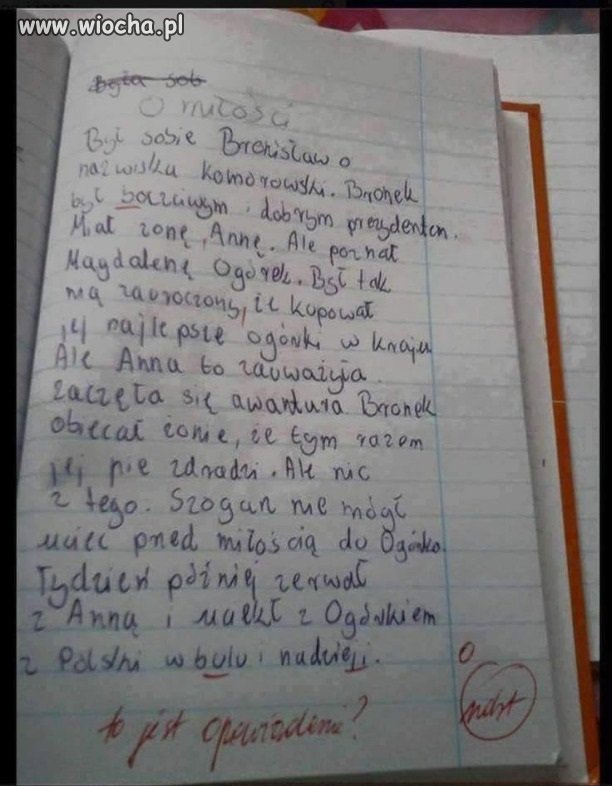 www.wiocha.pl
Była sob
O miłości
Był sobie Bronisław o
nazwisku Komorowski. Bronek
był boczciwym i dobrym prezydentem.
Miał żonę, Annę. Ale poznał
Magdalenę Ogórek. Był tak
nią zauroczony, że kupował
jej najlepsze ogórki w kraju
Ale Anna to zauważyła.
Zaczęła się awantura Bronek
obiecał żonie, że tym razem
jej nie zdradzi. Ale nic
z tego. Szogun nie mógł
uciec przed miłością do Ogórka.
Tydzień później zerwał
z Anną i uciekł z Ogórkiem
z Polski w bulu i nadzieji.
to jest opowiadanie?
ndst